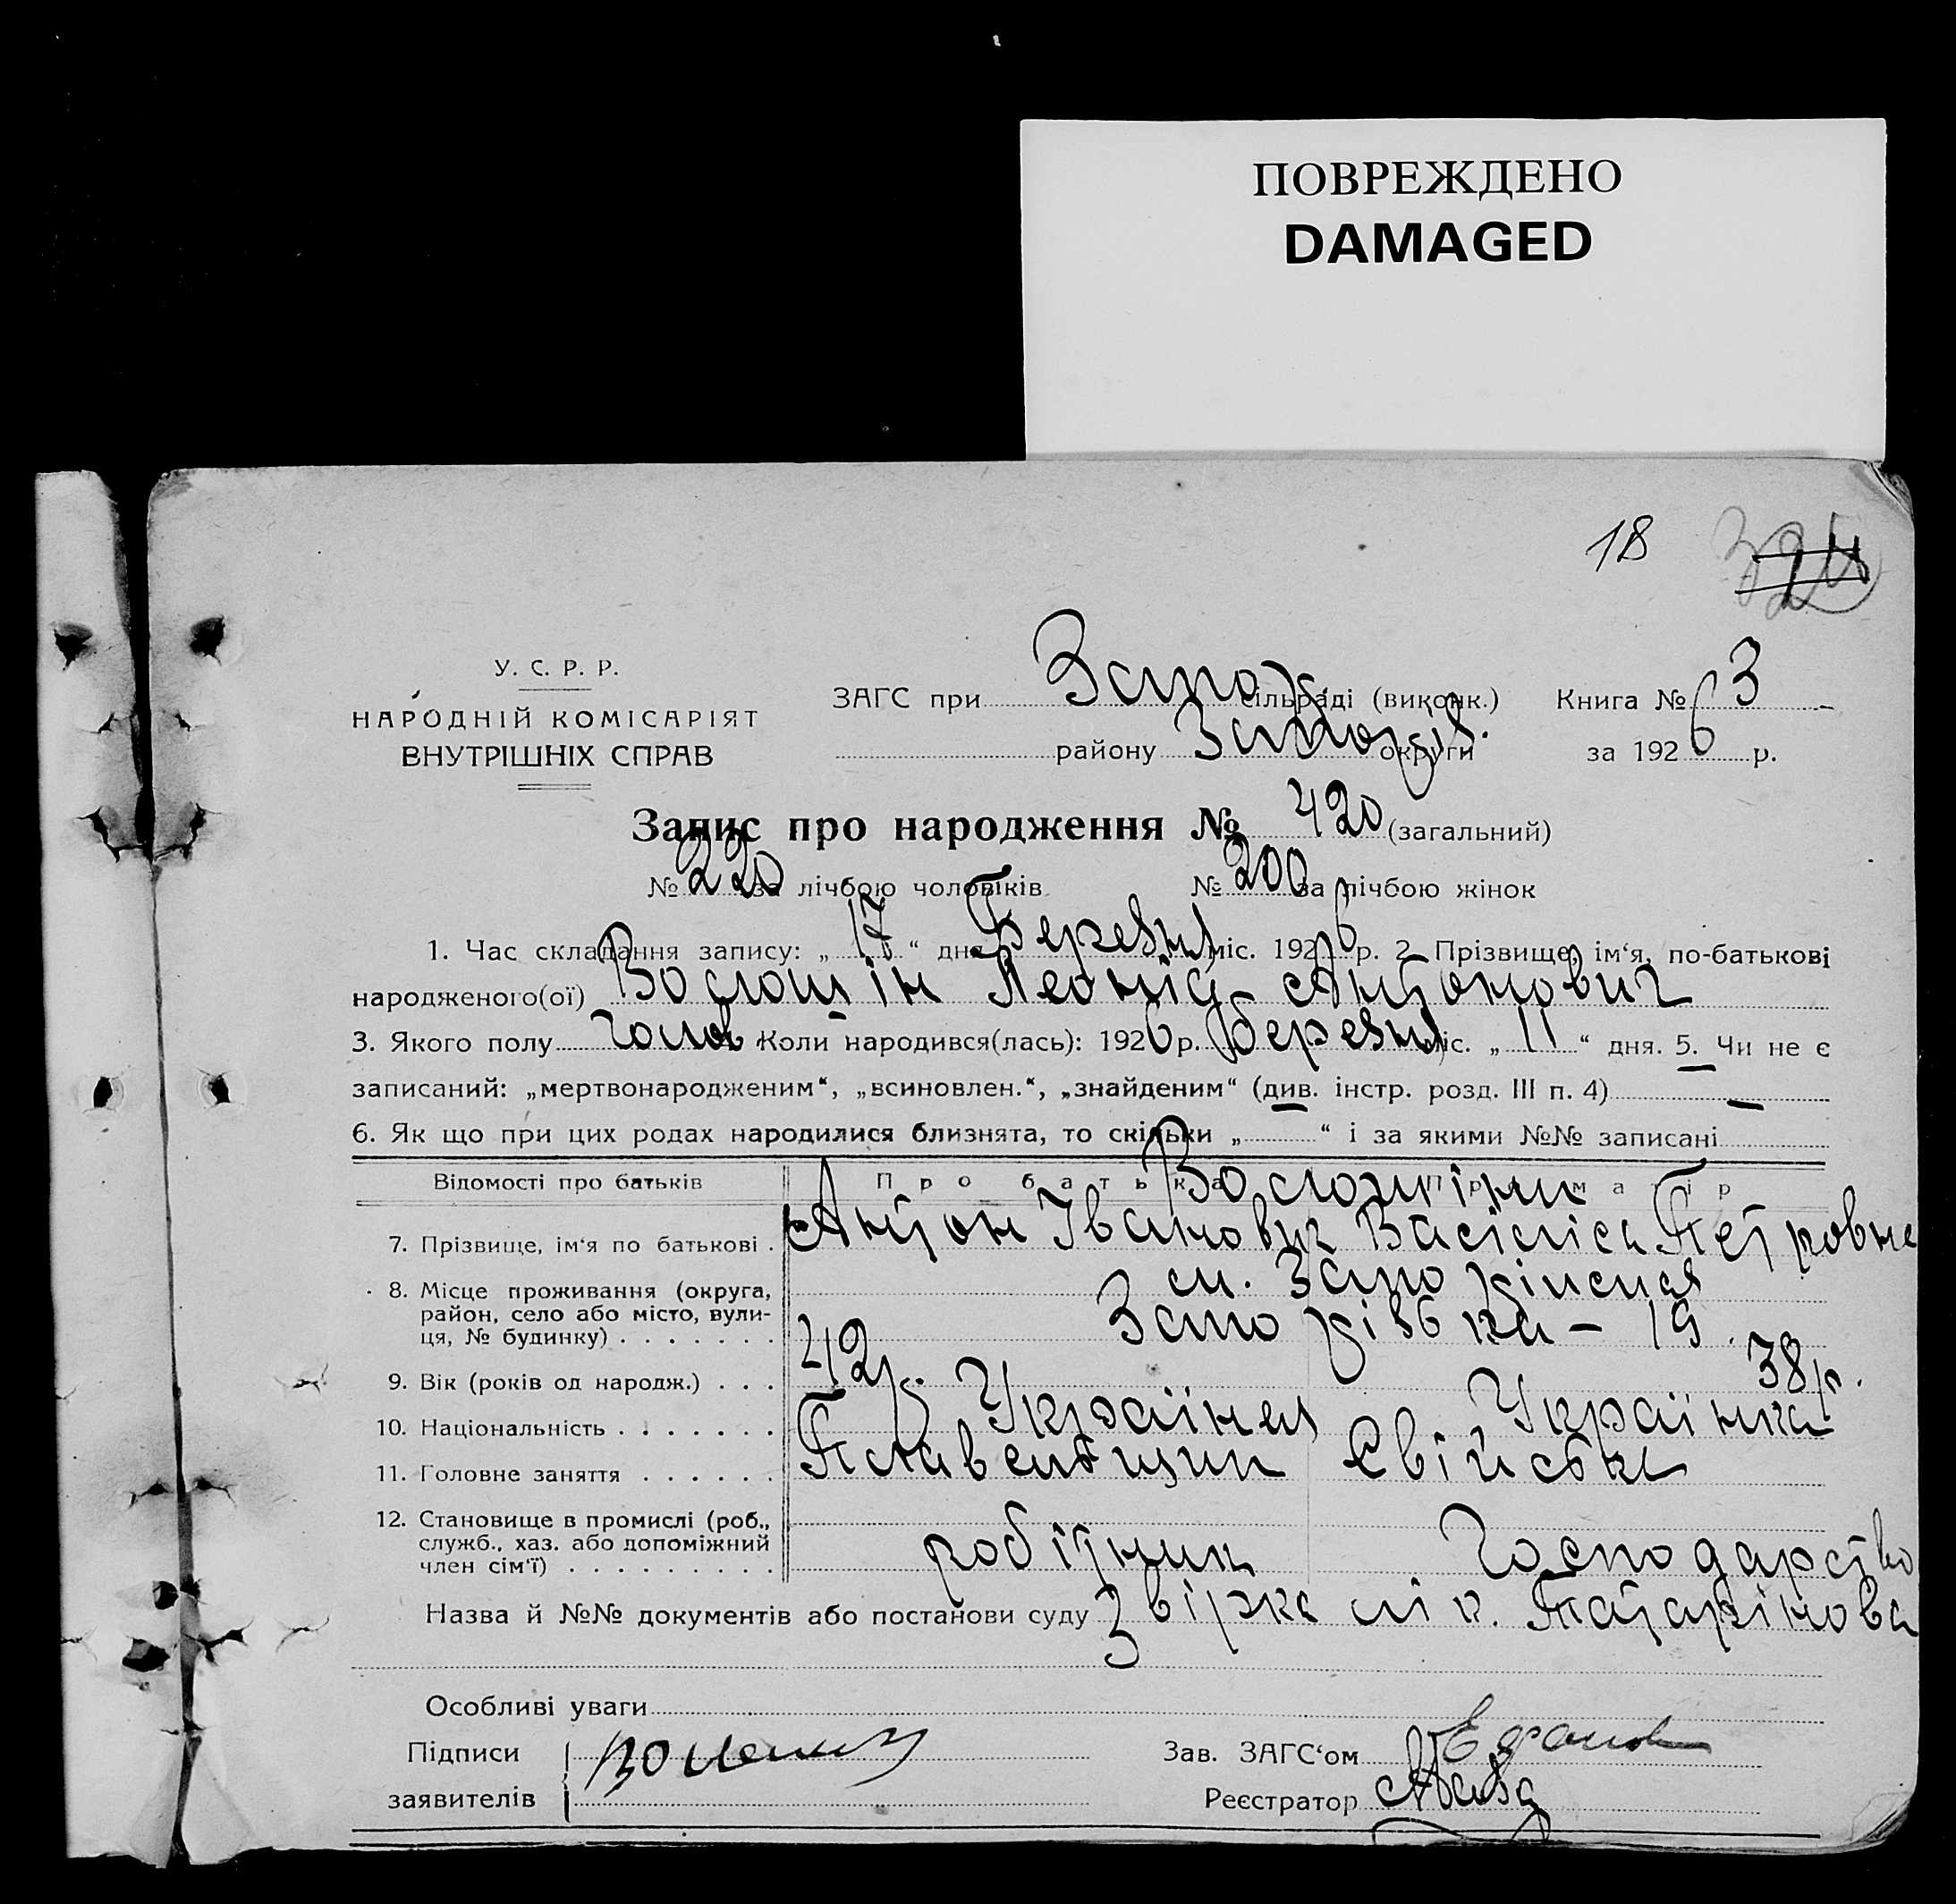 ПОВРЕЖДЕНО
DAMAGED
18
У. С. Р. Р.
НАРОДНІЙ КОМІСАРІЯТ
ВНУТРІШНІХ СПРАВ
ЗАГС при Запор. сільраді (виконк.) Книга № 3
району Запоріз. округи за 1926 р.
Запис про народження № 420 (загальний)
№ 220 за лічбою чоловіків № 200 за лічбою жінок
1. Час складання запису: „ 17 “ дня Березня міс. 1926 р. 2. Прізвище, ім‘я, по-батькові
народженого(ої) Волошін Леонід Антонович
3. Якого полу чолов. Коли народився(лась): 1926 р. Березня міс. „ 11 “ дня. 5. Чи не є
записаний: „мертвонародженим“, „всиновлен.“, „знайденим“ (див. інстр. розд. III п. 4) —
6. Як що при цих родах народилися близнята, то скільки „ “ і за якими №№ записані
Відомості про батьків Про батька Про матір
Волошіни
7. Прізвище, ім‘я по батькові . Антон Іванович Васіліса Петровна
8. Місце проживання (округа, район, село або місто, вулиця, № будинку) . . . . . . . м. Запоріжжя
Запоріз — 19.
9. Вік (років од народж.) . . . 42 р. 38 р.
10. Національність . . . . . . . Українец Українка
11. Головне заняття . . . . . . Свійське
12. Становище в промислі (роб., служб., хаз. або допоміжний член сім‘ї) . . . . . . . . . робітник господарство
Назва й №№ документів або постанови суду Звірка лік. Татарінова
Особливі уваги
Підписи
заявителів
Зав. ЗАГС‘ом
Реєстратор